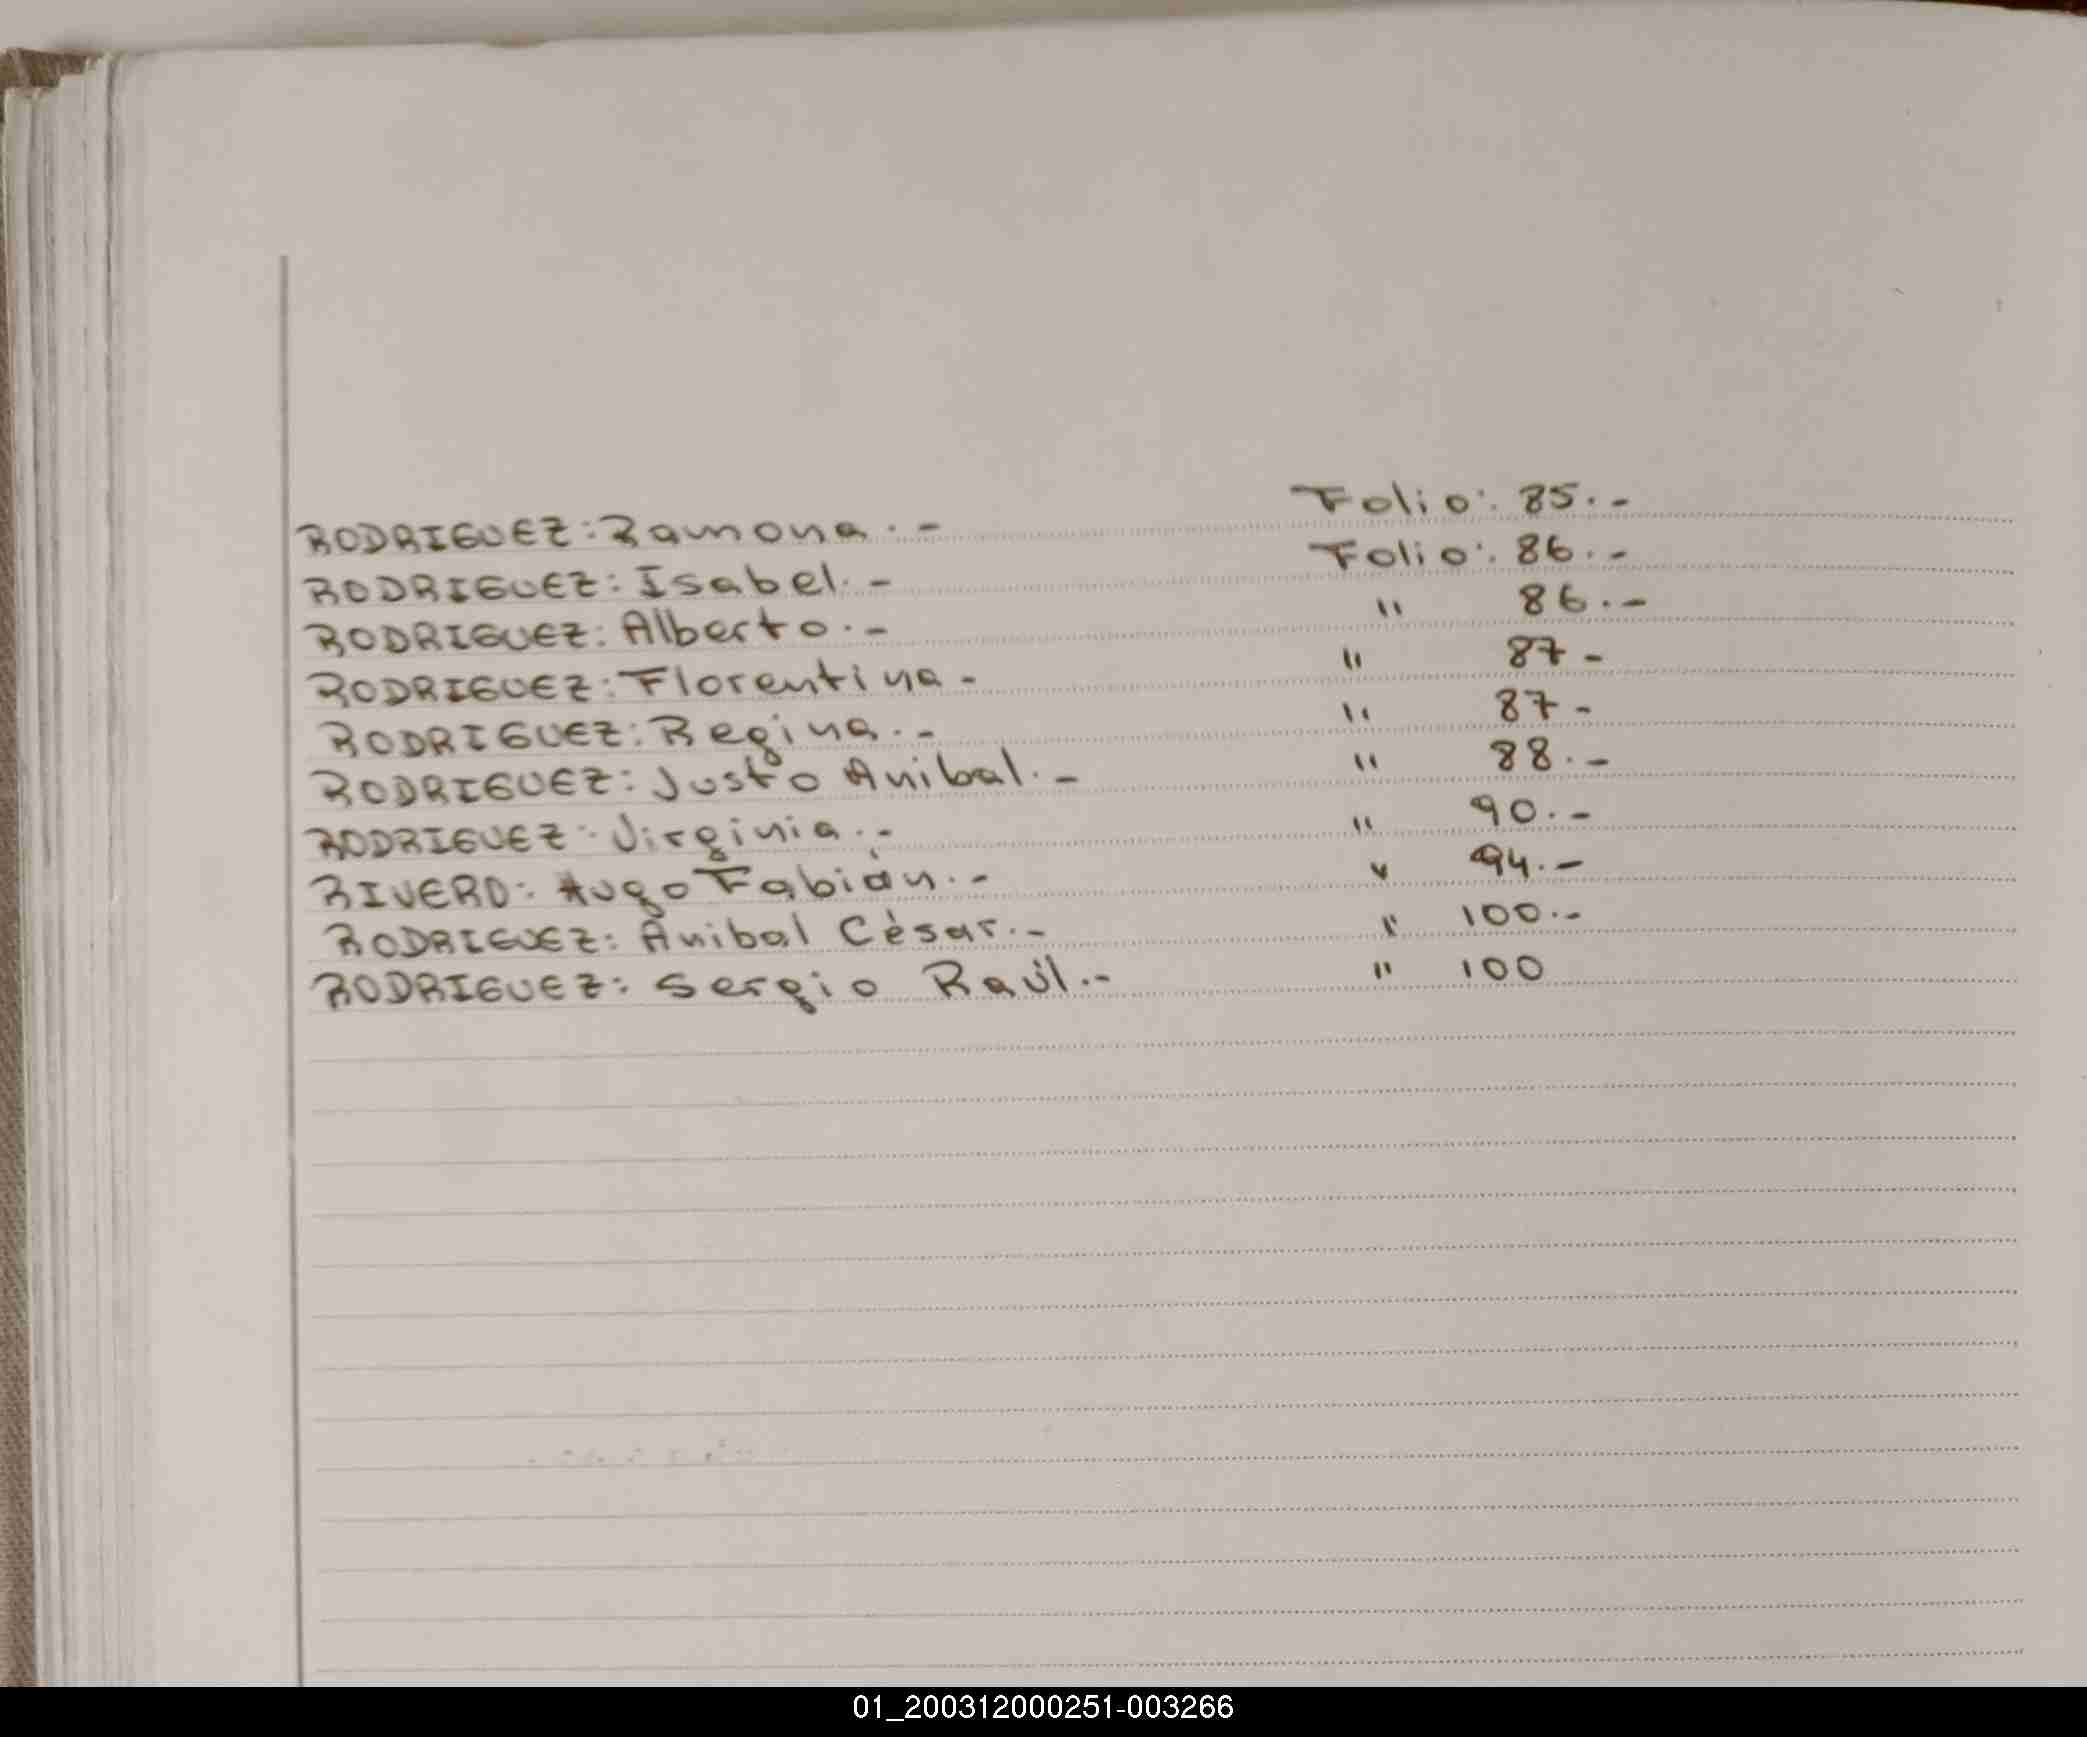 RODRIGUEZ: Ramona.- Folio: 85.-
RODRIGUEZ: Isabel.- Folio: 86.-
RODRIGUEZ: Alberto.- " 86.-
RODRIGUEZ: Florentina- " 87-
RODRIGUEZ: Regina.- " 87-
RODRIGUEZ: Justo Anibal.- " 88.-
RODRIGUEZ: Virginia.- " 90.-
RIVERO: Hugo Fabián.- " 94.-
RODRIGUEZ: Anibal Cèsar.- " 100.-
RODRIGUEZ: Sergio Raúl.- " 100
01_200312000251-003266